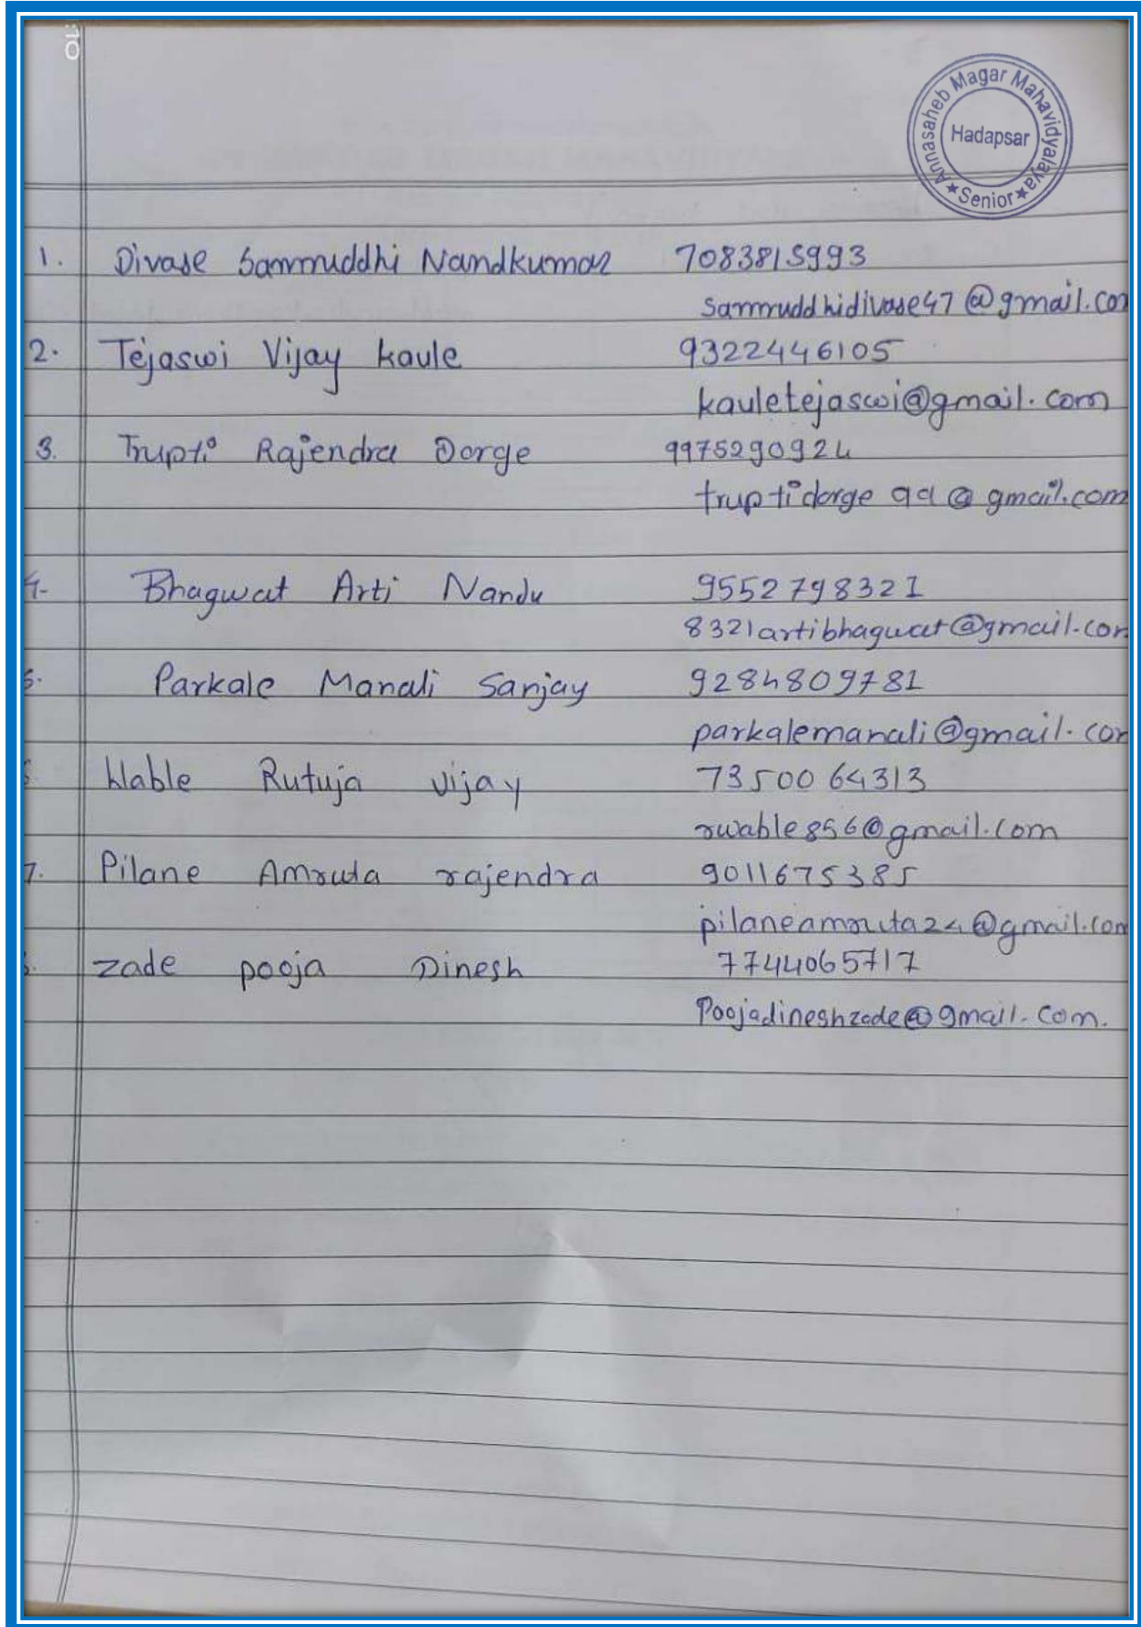 :10
Annasaheb Magar Mahavidyalaya
Hadapsar
★ Senior ★
1. Divase Sammuddhi Nandkumar 7083815993
sammruddhidivase47@gmail.com
2. Tejaswi Vijay kaule 9322446105
kauletejaswi@gmail.com
3. Trupti Rajendra Dorge 9975290924
truptidorge 99@gmail.com
4- Bhagwat Arti Nandu 9552798321
8321artibhagwat@gmail.com
5. Parkale Manali Sanjay 9284809781
parkalemanali@gmail.com
Wable Rutuja vijay 7350064313
rwable856@gmail.com
7. Pilane Amruta rajendra 9011675385
pilaneamruta24@gmail.com
zade pooja Dinesh 7744065717
Poojadineshzade@gmail.com.